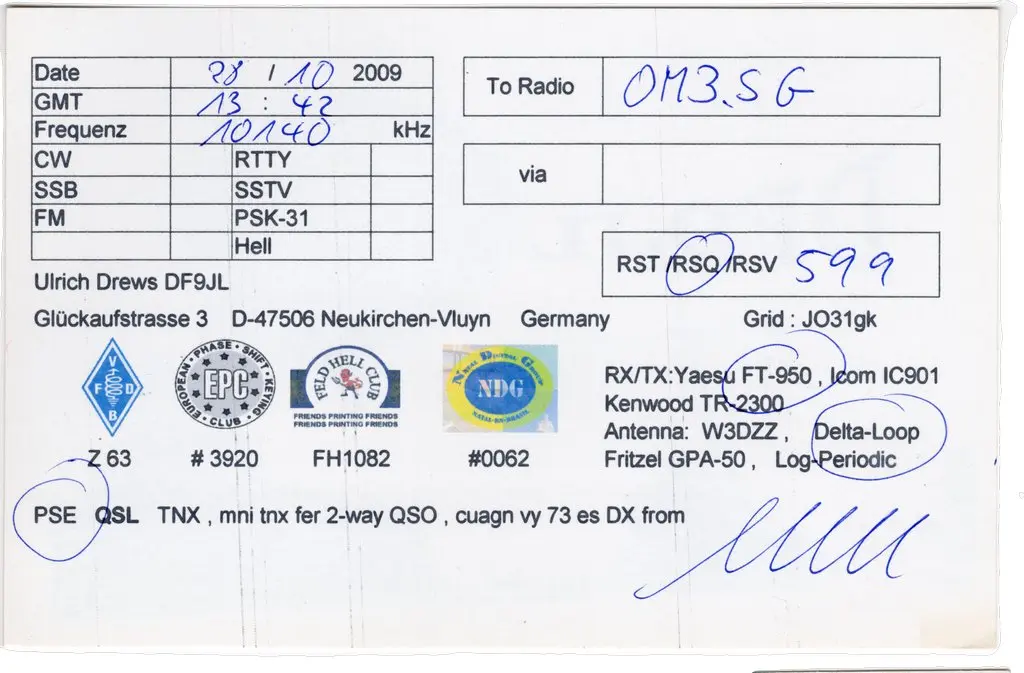 Date 28 / 10 2009
GMT 13 : 42
Frequenz 10140 kHz
CW RTTY
SSB SSTV
FM PSK-31
Hell
To Radio OM3.SG
via
RST /RSQ/RSV 599
Ulrich Drews DF9JL
Glückaufstrasse 3 D-47506 Neukirchen-Vluyn Germany Grid : JO31gk
V F D B
EUROPEAN • PHASE • SHIFT • KEYING • CLUB •
EPC
FELD HELL CLUB
FRIENDS PRINTING FRIENDS
FRIENDS PRINTING FRIENDS
NDG
Z 63 # 3920 FH1082 #0062
RX/TX:Yaesu FT-950 , Icom IC901
Kenwood TR-2300
Antenna: W3DZZ , Delta-Loop
Fritzel GPA-50 , Log-Periodic
PSE QSL TNX , mni tnx fer 2-way QSO , cuagn vy 73 es DX from